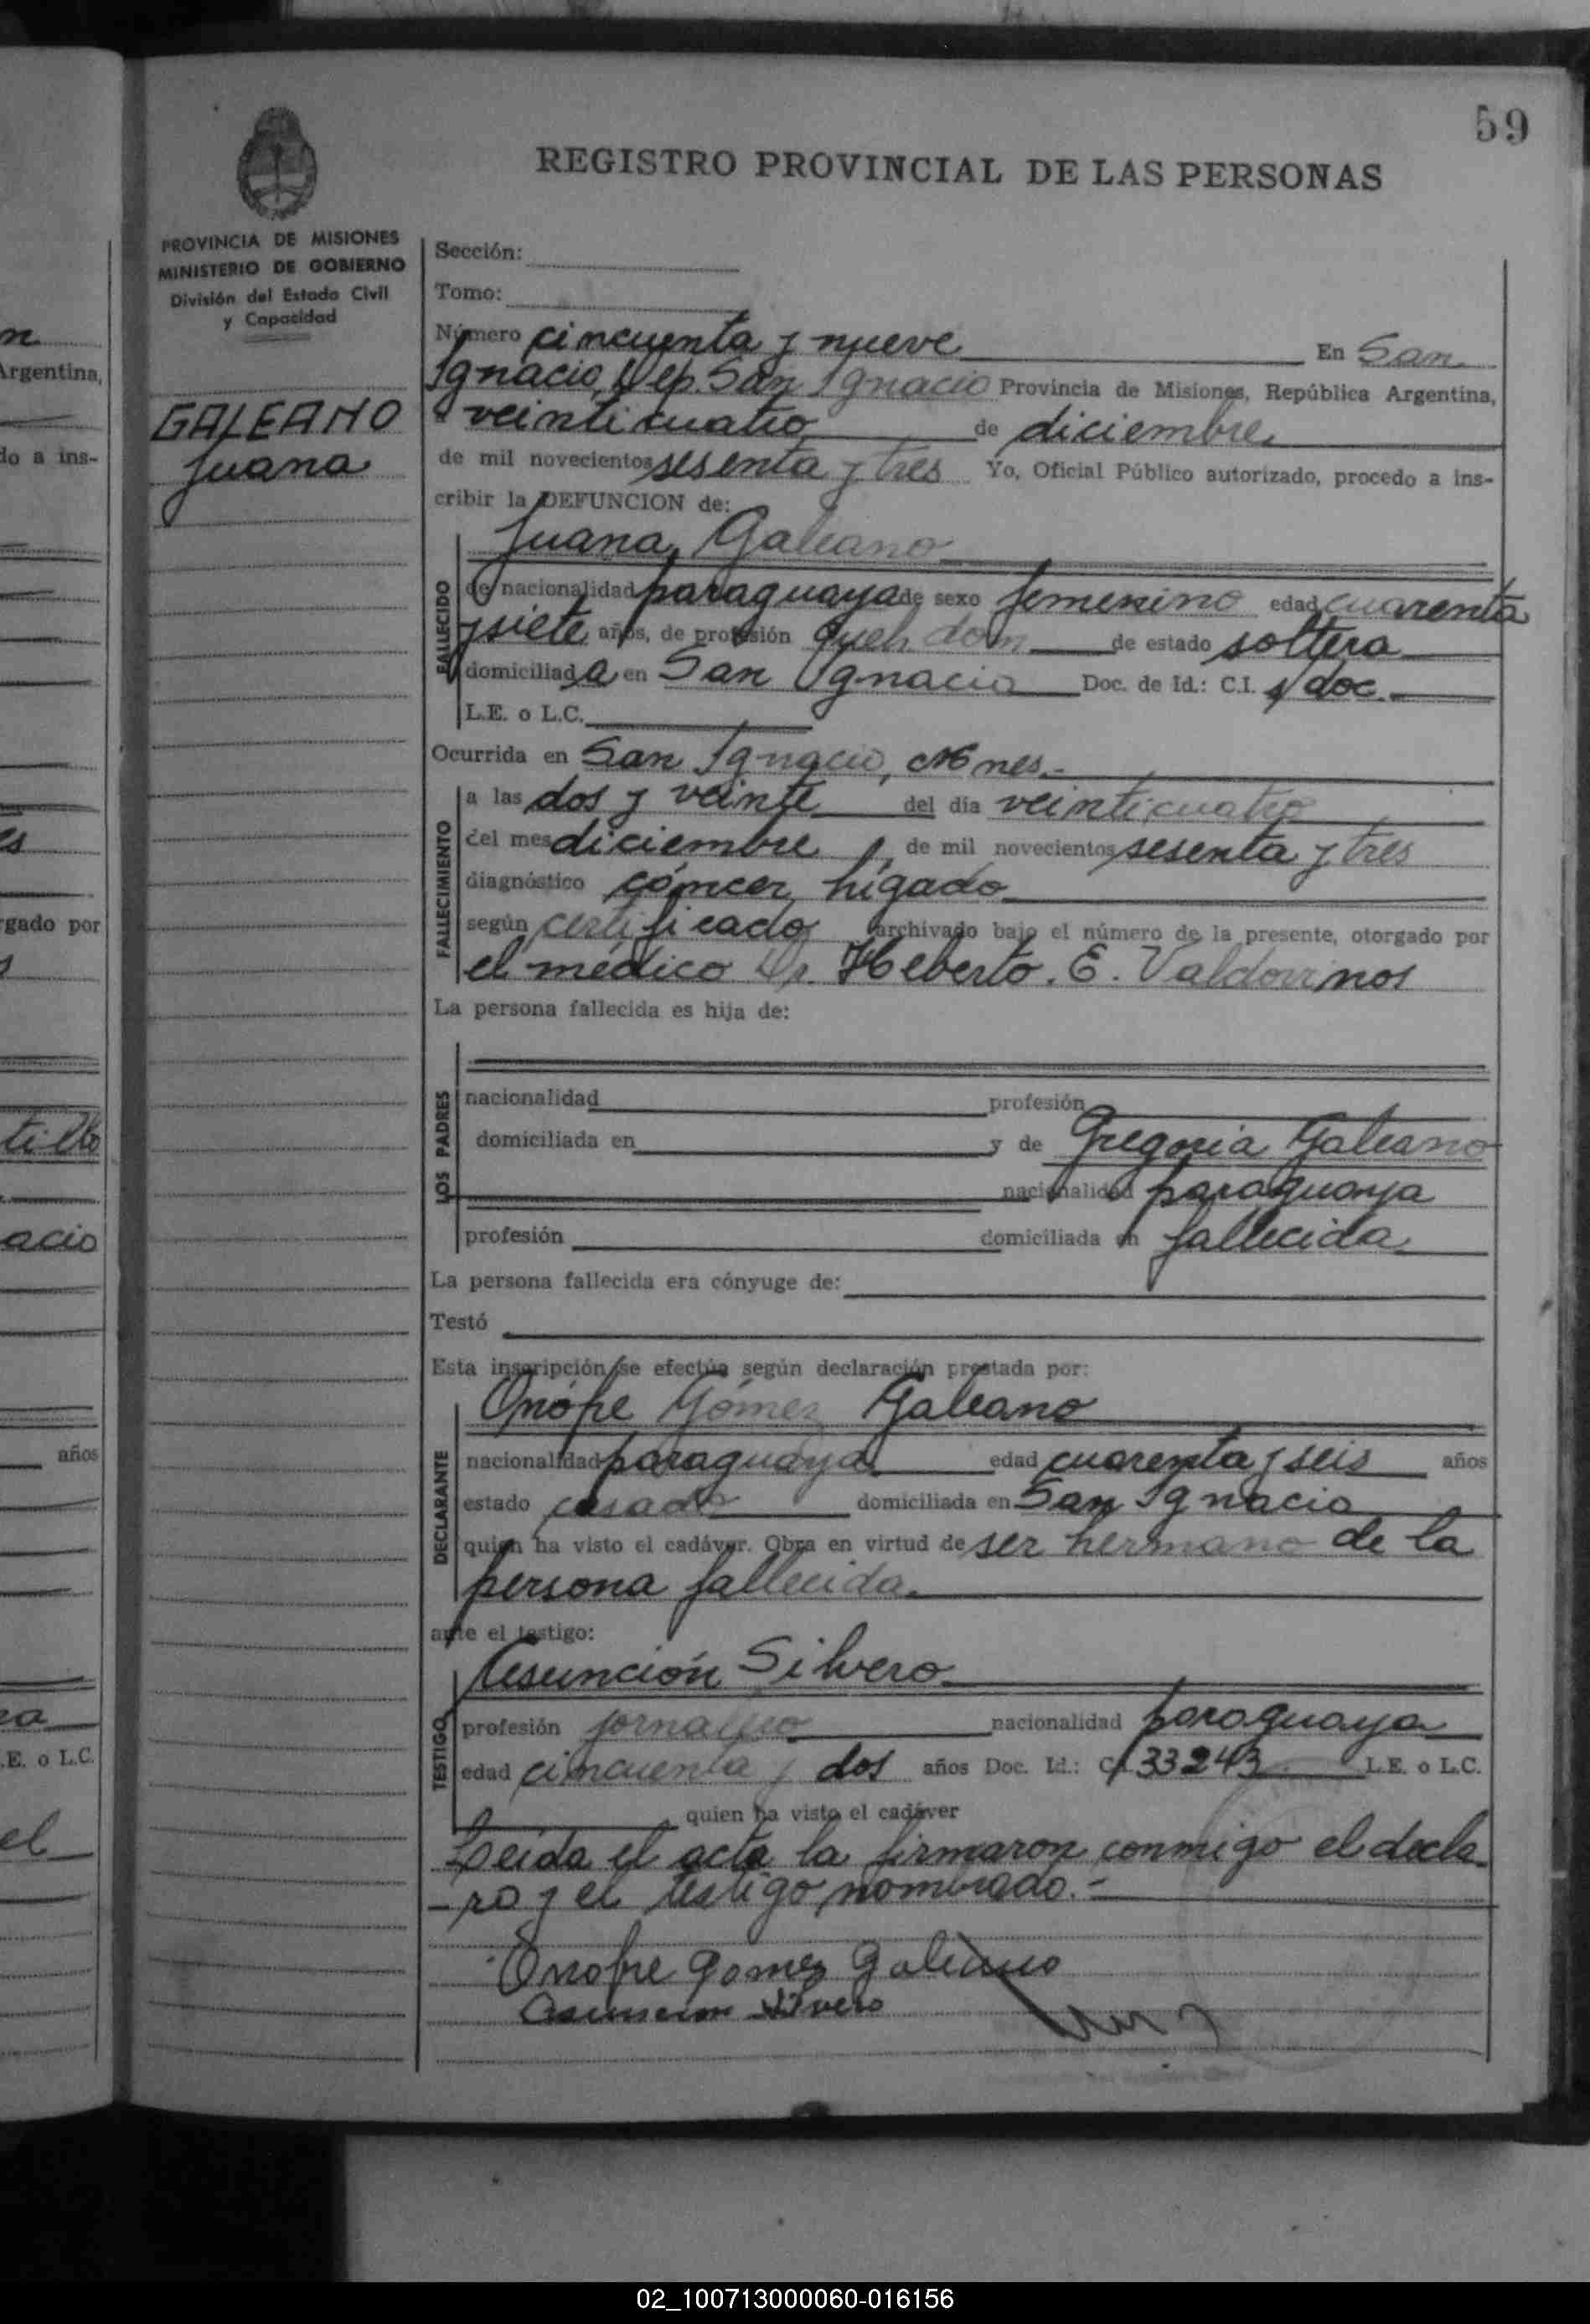 59
REGISTRO PROVINCIAL DE LAS PERSONAS
PROVINCIA DE MISIONES
MINISTERIO DE GOBIERNO
División del Estado Civil
y Capacidad
GALEANO
Juana
Sección:
Tomo:
Número cincuenta y nueve En San
Ignacio, Dep. San Ignacio Provincia de Misiones, República Argentina,
a veinticuatro de diciembre
de mil novecientos sesenta y tres Yo, Oficial Público autorizado, procedo a ins-
cribir la DEFUNCION de:
Juana Galeano
FALLECIDO
de nacionalidad paraguaya de sexo femenino edad cuarenta
y siete años, de profesión Queh. dom de estado soltera
domiciliada en San Ignacio Doc. de Id.: C.I. s/doc.
L.E. o L.C.
Ocurrida en San Ignacio, Mnes.-
FALLECIMIENTO
a las dos y veinte del día veinticuatro
del mes diciembre, de mil novecientos sesenta y tres
diagnóstico cáncer hígado
según certificado archivado bajo el número de la presente, otorgado por
el médico Dr. Heberto. E. Valdovinos
La persona fallecida es hija de:
LOS PADRES
nacionalidad profesión
domiciliada en y de Gregoria Galeano
nacionalidad paraguaya
profesión domiciliada en fallecida
La persona fallecida era cónyuge de:
Testó
Esta inscripción se efectúa según declaración prestada por:
Onófre Gómez Galeano
DECLARANTE
nacionalidad paraguaya edad cuarenta y seis años
estado casado domiciliada en San Ignacio
quien ha visto el cadáver. Obra en virtud de ser hermano de la
persona fallecida.
ante el testigo:
Asunción Silvero
TESTIGO
profesión jornalero nacionalidad paraguaya
edad cincuenta y dos años Doc. Id.: C.I. 33243 L.E. o L.C.
quien ha visto el cadáver
Leída el acta la firmaron conmigo el decla-
-ro y el testigo nombrado.-
Onofre Gomez Galeano
Asuncion Silvero
n
Argentina,
do a ins-
es
rgado por
tillo
acio
años
ra
.E. o L.C.
el
02_100713000060-016156